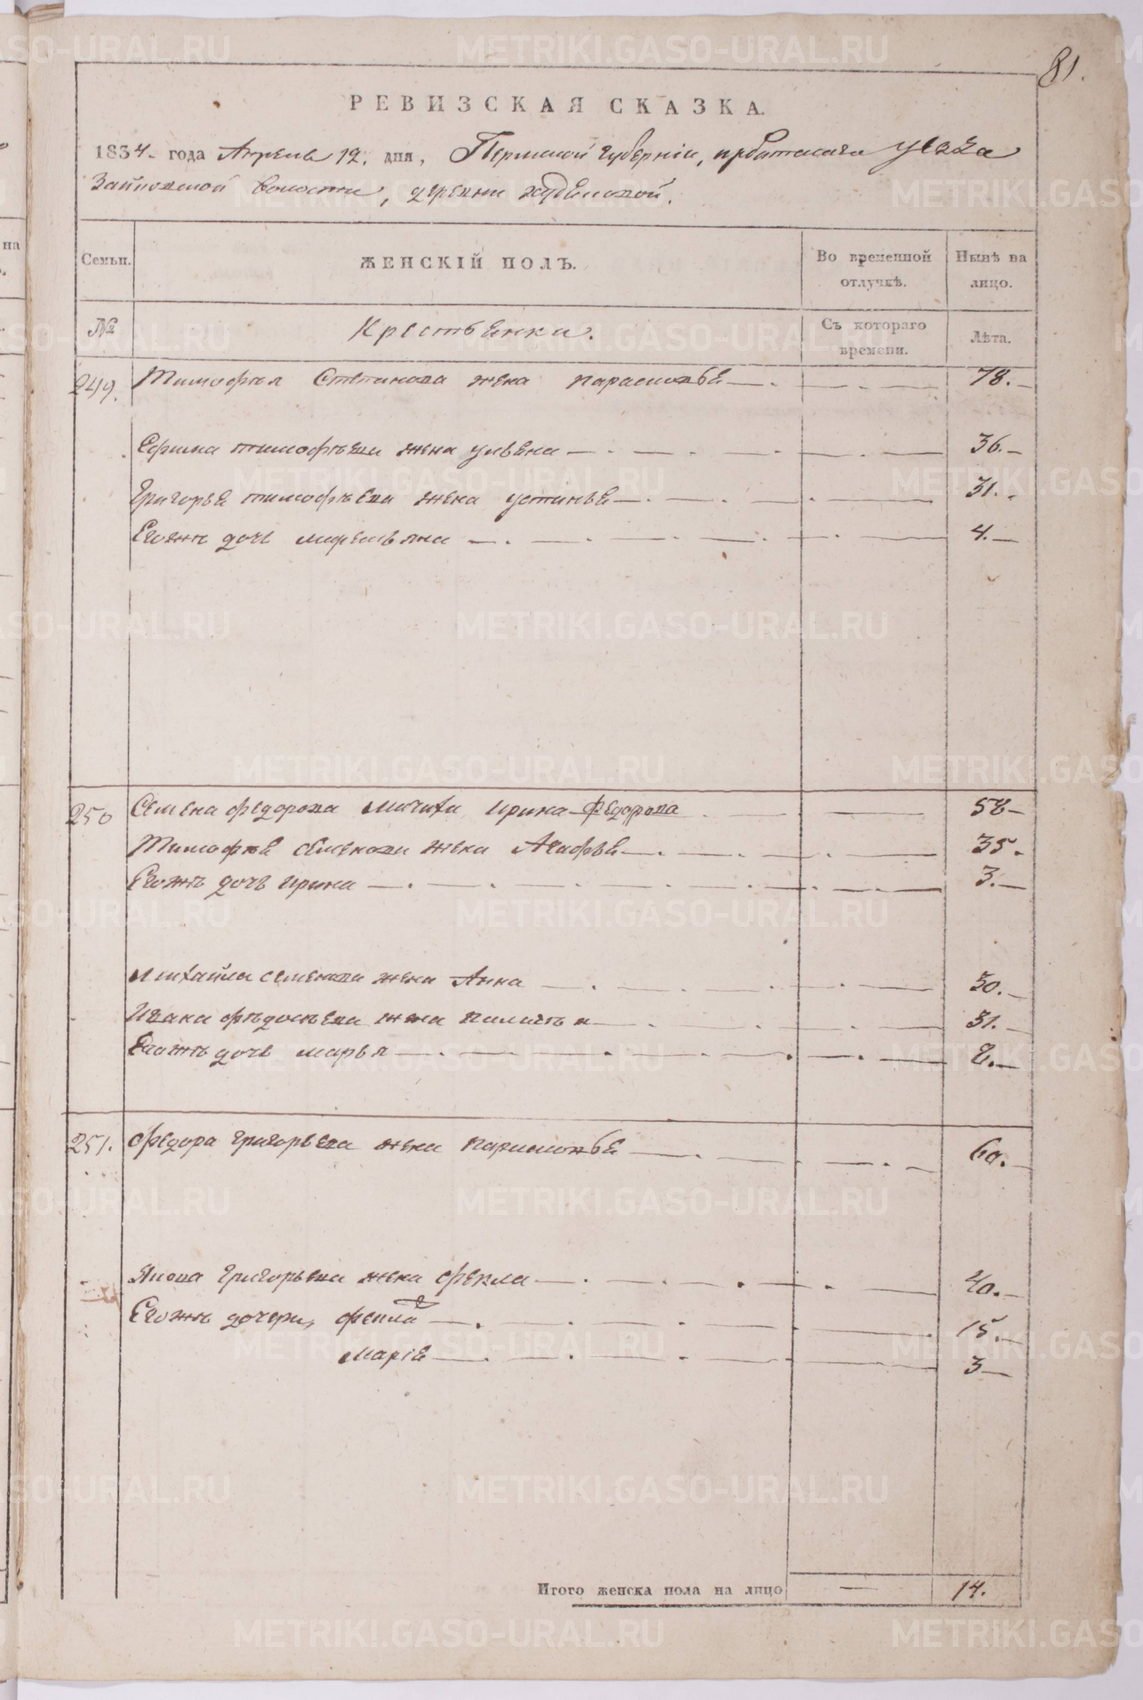 81.
РЕВИЗСКАЯ СКАЗКА.
1834. года Апреля 12. дня, Пермской губернiи, ирбитскаго уезда
волости, деревни
на
Семьи. ЖЕНСКIЙ ПОЛЪ. Во временной отлучкѣ. Нынѣ на лицо.
№ Крестьянки. Съ котораго времени. Лѣта.
249. Тимофея Степанова жена парасковья 78.
Ефима тимофѣева жена ульяна 36.
Григорья тимофѣева жена устинья 31.
Еѓожъ дочь 4.
250 Семена федорова ирина Федорова 58
Тимофѣя семенова жена Агафья 35.
Егожъ дочь ирина 3.
михайла семенова жена Анна 30.
Ивана жена пилагѣя 31.
Егожъ дочь марья 8.
251. федора григорьева жена парасковья 60.
Якова григорьева жена фекла 40.
Егожъ дочери, фекла 15.
марiя 3
Итого женска пола на лицо — 14.
METRIKI.GASO-URAL.RU